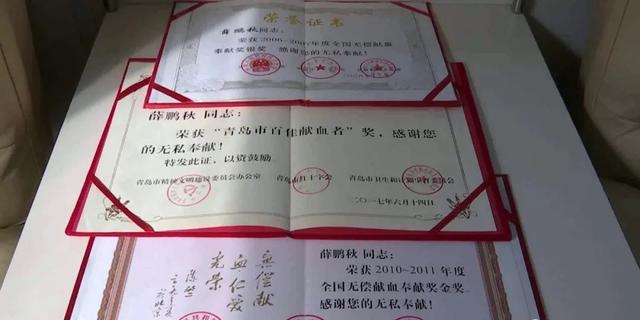 荣誉证书
薛鹏秋同志：
荣获2006-2007年度全国无偿献血
奉献奖银奖 感谢您的无私奉献！
薛鹏秋 同志：
荣获“青岛市百佳献血者”奖，感谢您
的无私奉献！
特发此证，以资鼓励
青岛市精神文明建设委员会办公室 青岛市红十字会 青岛市卫生和计划生育委员会
二〇一七年六月十四日
无偿献
血仁爱
光荣
薛鹏秋 同志：
荣获 2010~2011 年度
全国无偿献血奉献奖金奖，
感谢您的无私奉献！